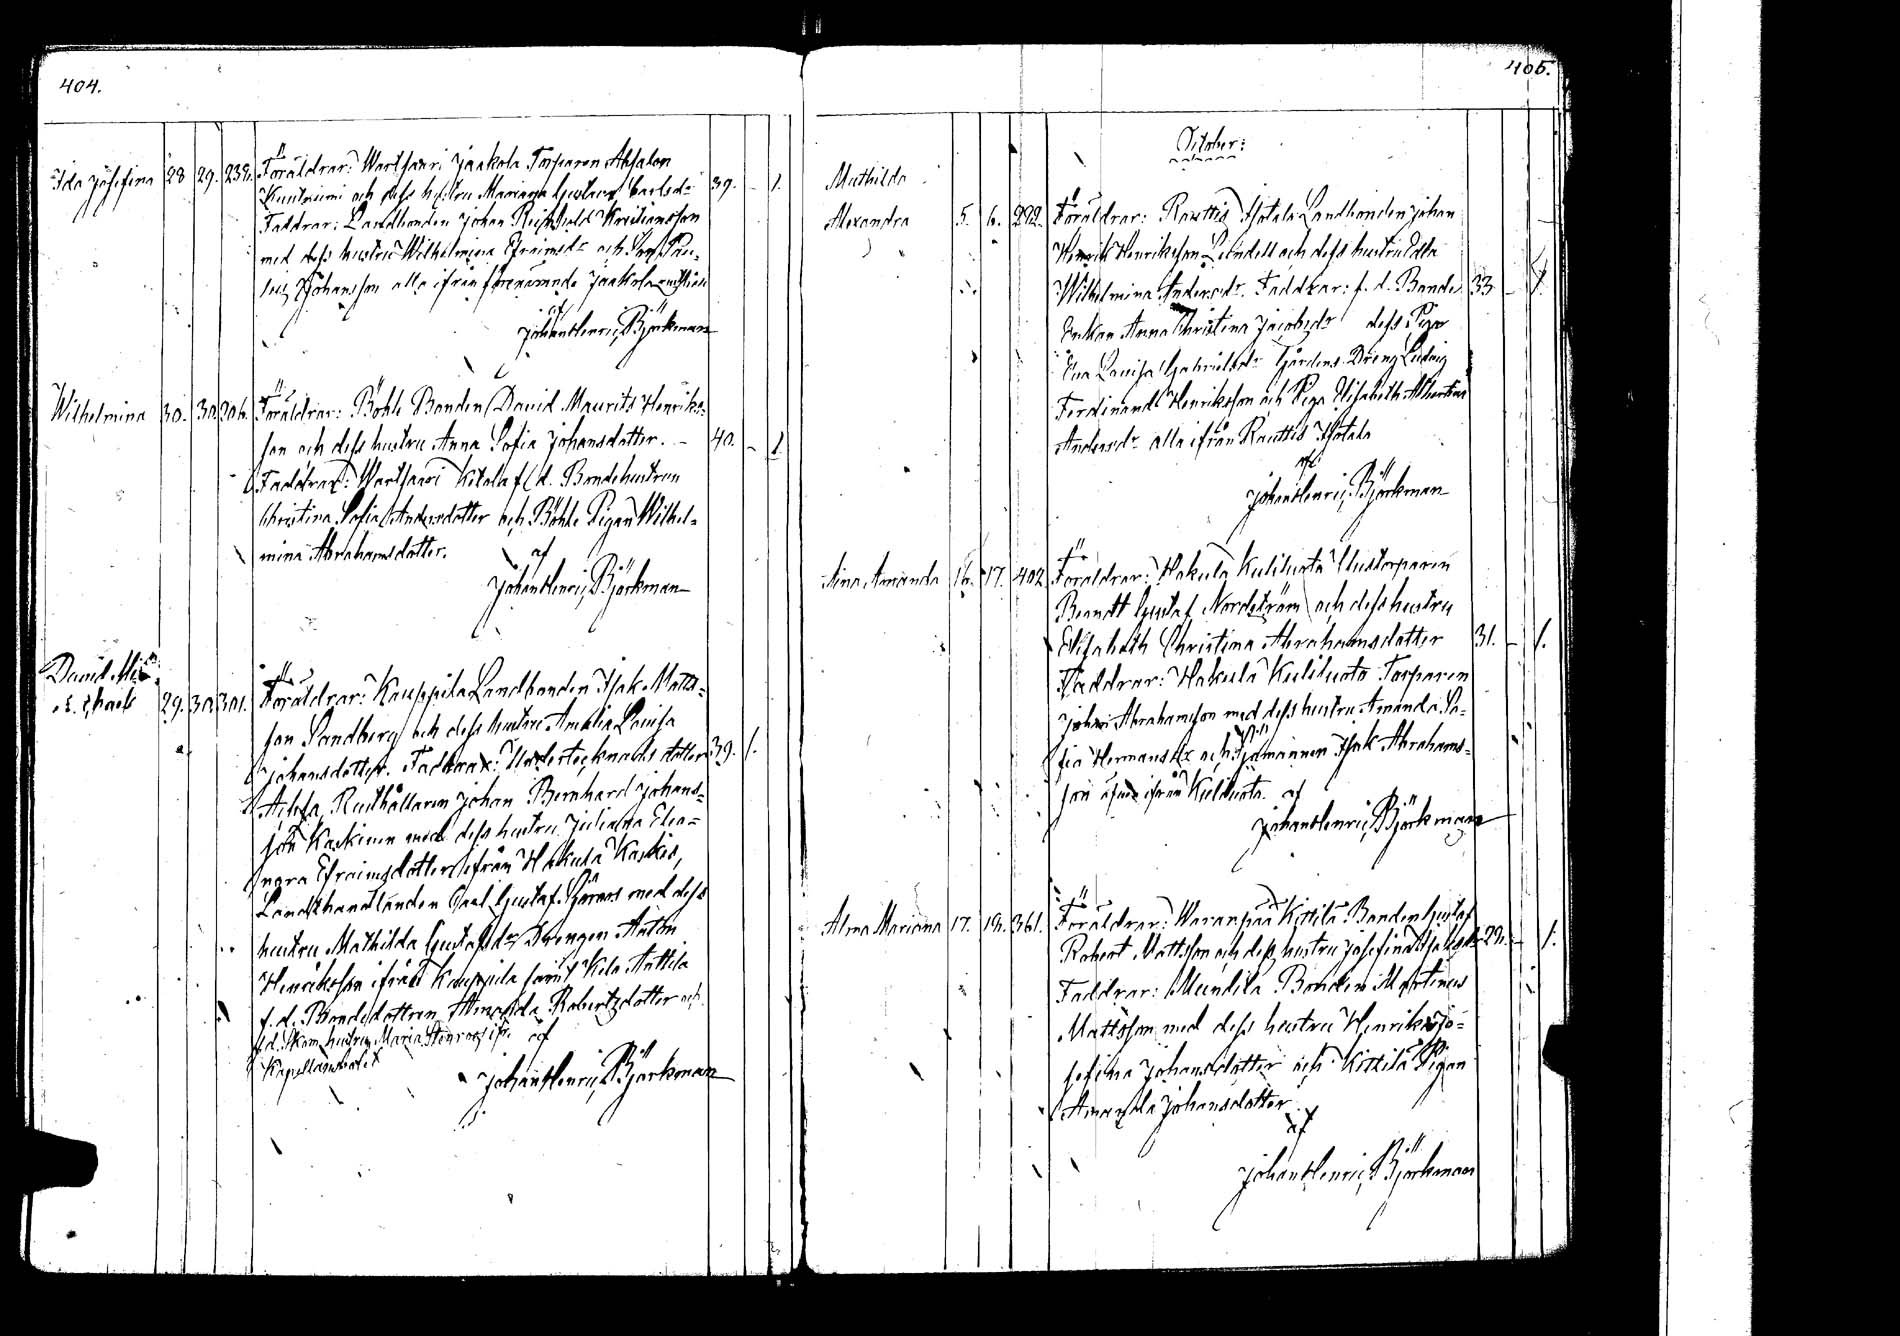 404.
Ida Josefina 28 29. 238. Föräldrar: Wartsaari Jaakola Torparen Absalon
Kustruumi och dess hustru Mariana Gustava Carlsdr 39. - 1.
Faddrar: Landbonden Johan Reinhold Kristiansson
med dess hustru Wilhelmina Efraimsdr och
Johansson alla ifrån förenämnde Jaakola
af
Johan Henric Björkman
Wilhelmina 30. 30. 306. Föräldrar: Böhle Bonden David Maurits Henriks-
son och dess hustru Anna Sofia Johansdotter. - 40. - 1.
Faddrar: Wartsaari Kitola f. d. Bondehustrun
Christina Sofia Andersdotter och Böhle Pigan Wilhel-
mina Abrahamsdotter. af
Johan Henric Björkman
David Mi-
chael 29. 30. 301. Föräldrar: Kauppila Landbonden Isak Matts-
son Sandberg och dess hustru Amalia Lovisa
Johansdotter. Faddrar: Undertecknads dotter 39. 1.
Rusthållaren Johan Bernhard Johans-
son Kaskinen med dess hustru Juliana Eleo-
nora Efraimsdotter ifrån Hakula Kaskis,
Landthandlanden Carl Gustaf med dess
hustru Mathilda Gustafsdr Drengen Anton
Henriksson ifrån Kauppila samt Kila Anttila
f. d. Bondedottren Amanda Robertsdotter och
f. d. Skom. hustrun Maria Stenroos ifr. af
Kapellansbolet
Johan Henric Björkman
405.
October:
Mathilda
Alexandra 5. 6. 292. Föräldrar: Rauttis Isotalo Landbonden Johan
Henrik Henriksson Lindell och dess hustru Edla
Wilhelmina Andersdr. Faddrar: f. d. Bonde 33 - 1.
Enkan Anna Christina Jacobsdr dess Piga
Eva Lovisa Gabrielsdr Gårdens Dreng Ludvig
Ferdinand Henriksson och Piga Elisabeth Albertina
Andersdr alla ifrån Rauttis Isotalo
af
Johan Henric Björkman
Amanda 16. 17. 402 Föräldrar: Hakula Kuliluoto Hustorparen
Berndt Gustaf Nordström och dess hustru
Elisabeth Christina Abrahamsdotter 31. - 1.
Faddrar: Hakula Kuliluoto Torparen
Johan Abrahamsson med dess hustru Amanda So-
fia Hermansdr och Sjömannen Isak Abrahams-
son ifrån Kuliluoto. af
Johan Henric Björkman
Alma Mariana 17. 18. 361. Föräldrar: Waranpää Kittilä Bonden Gustaf
Robert Mattsson och dess hustru Josefina Isaksdr 28. - 1.
Faddrar: Mündilä Bonden Martinus
Mattsson med dess hustru Henrika Jo-
sefina Johansdotter och Kittilä Pigan
Amanda Johansdotter
af
Johan Henric Björkman